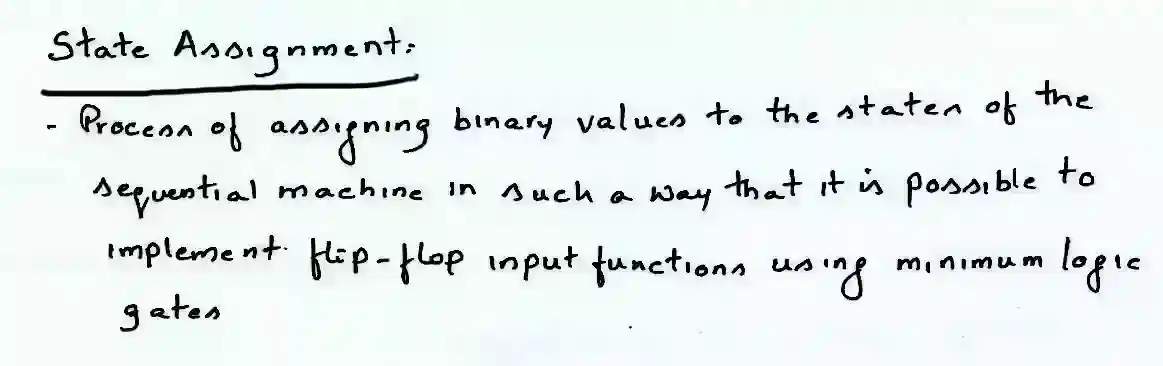 State Assignment:
- Process of assigning binary values to the states of the
sequential machine in such a way that it is possible to
implement flip-flop input functions using minimum logic
gates